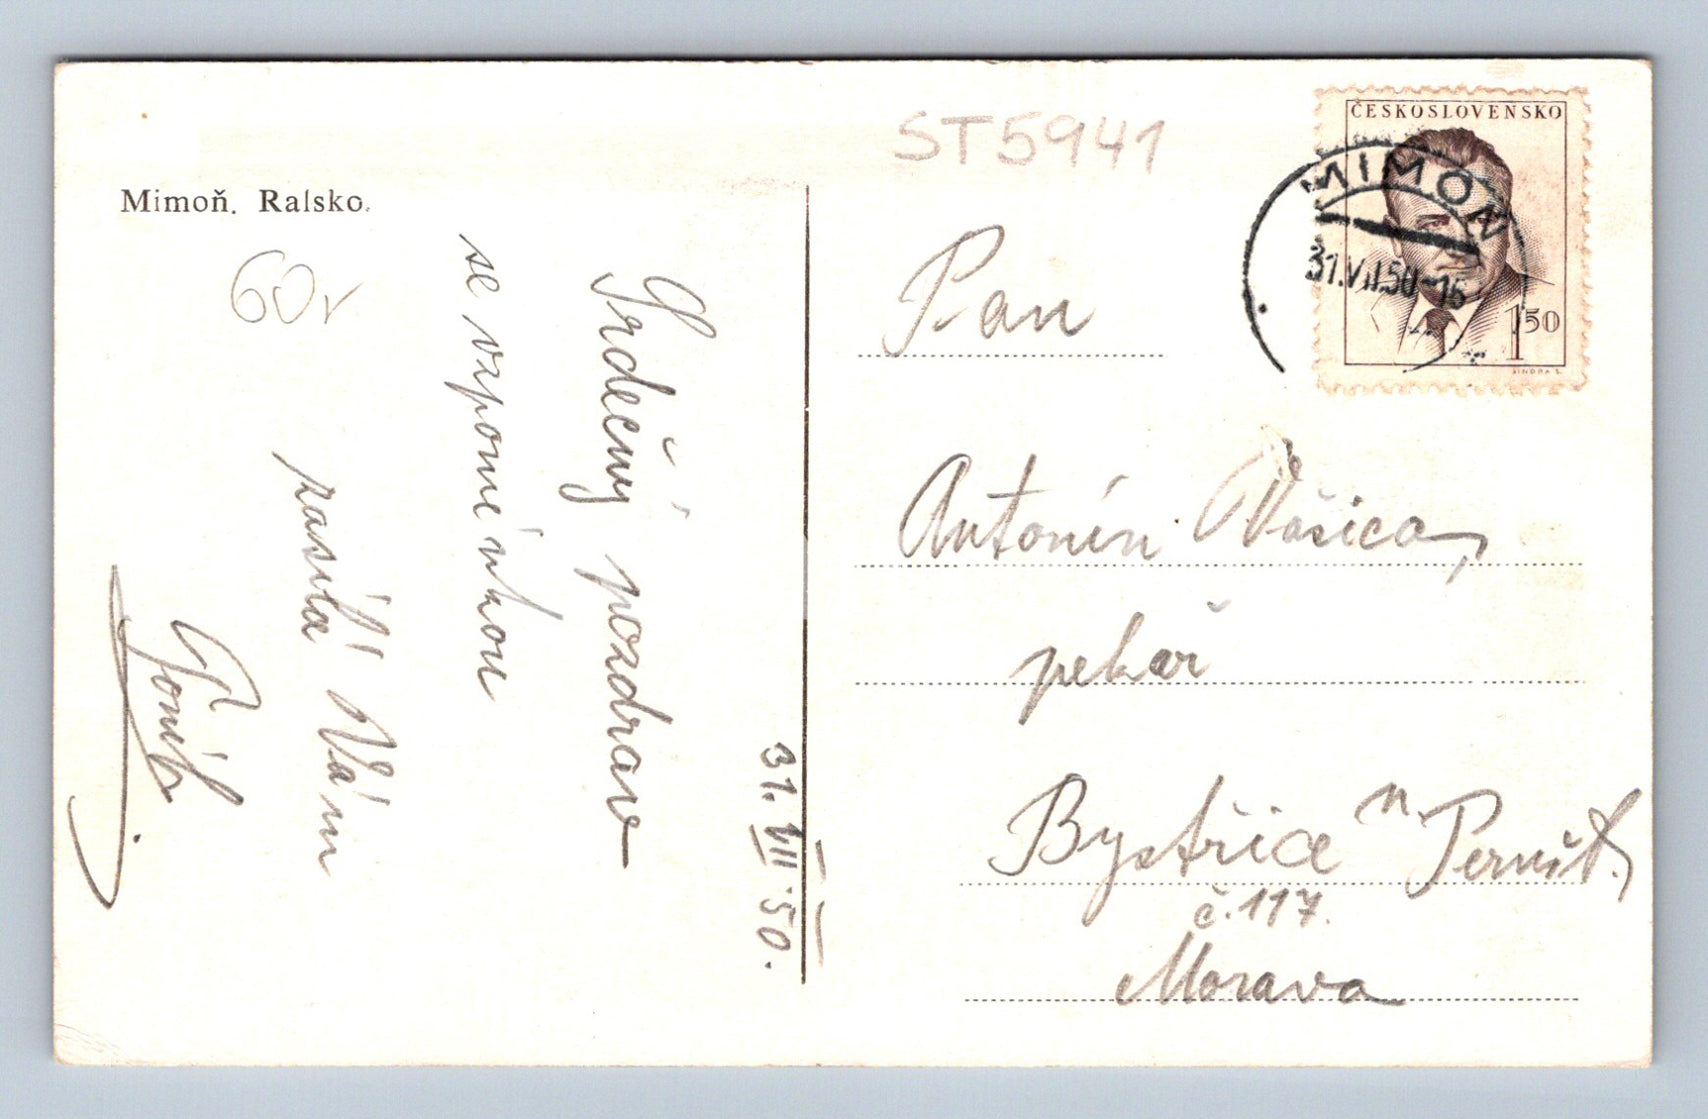 ST5941
ČESKOSLOVENSKO
MIMOŇ
31.VII.50-15
1 50
Mimoň. Ralsko.
60,-
Srdečný pozdrav
se vzpomínkou
zasílá Vám
31. VIII. 50.
Pan
Antonín Vašica,
pekař
Bystřice n. Pernšt.
č. 117.
Morava